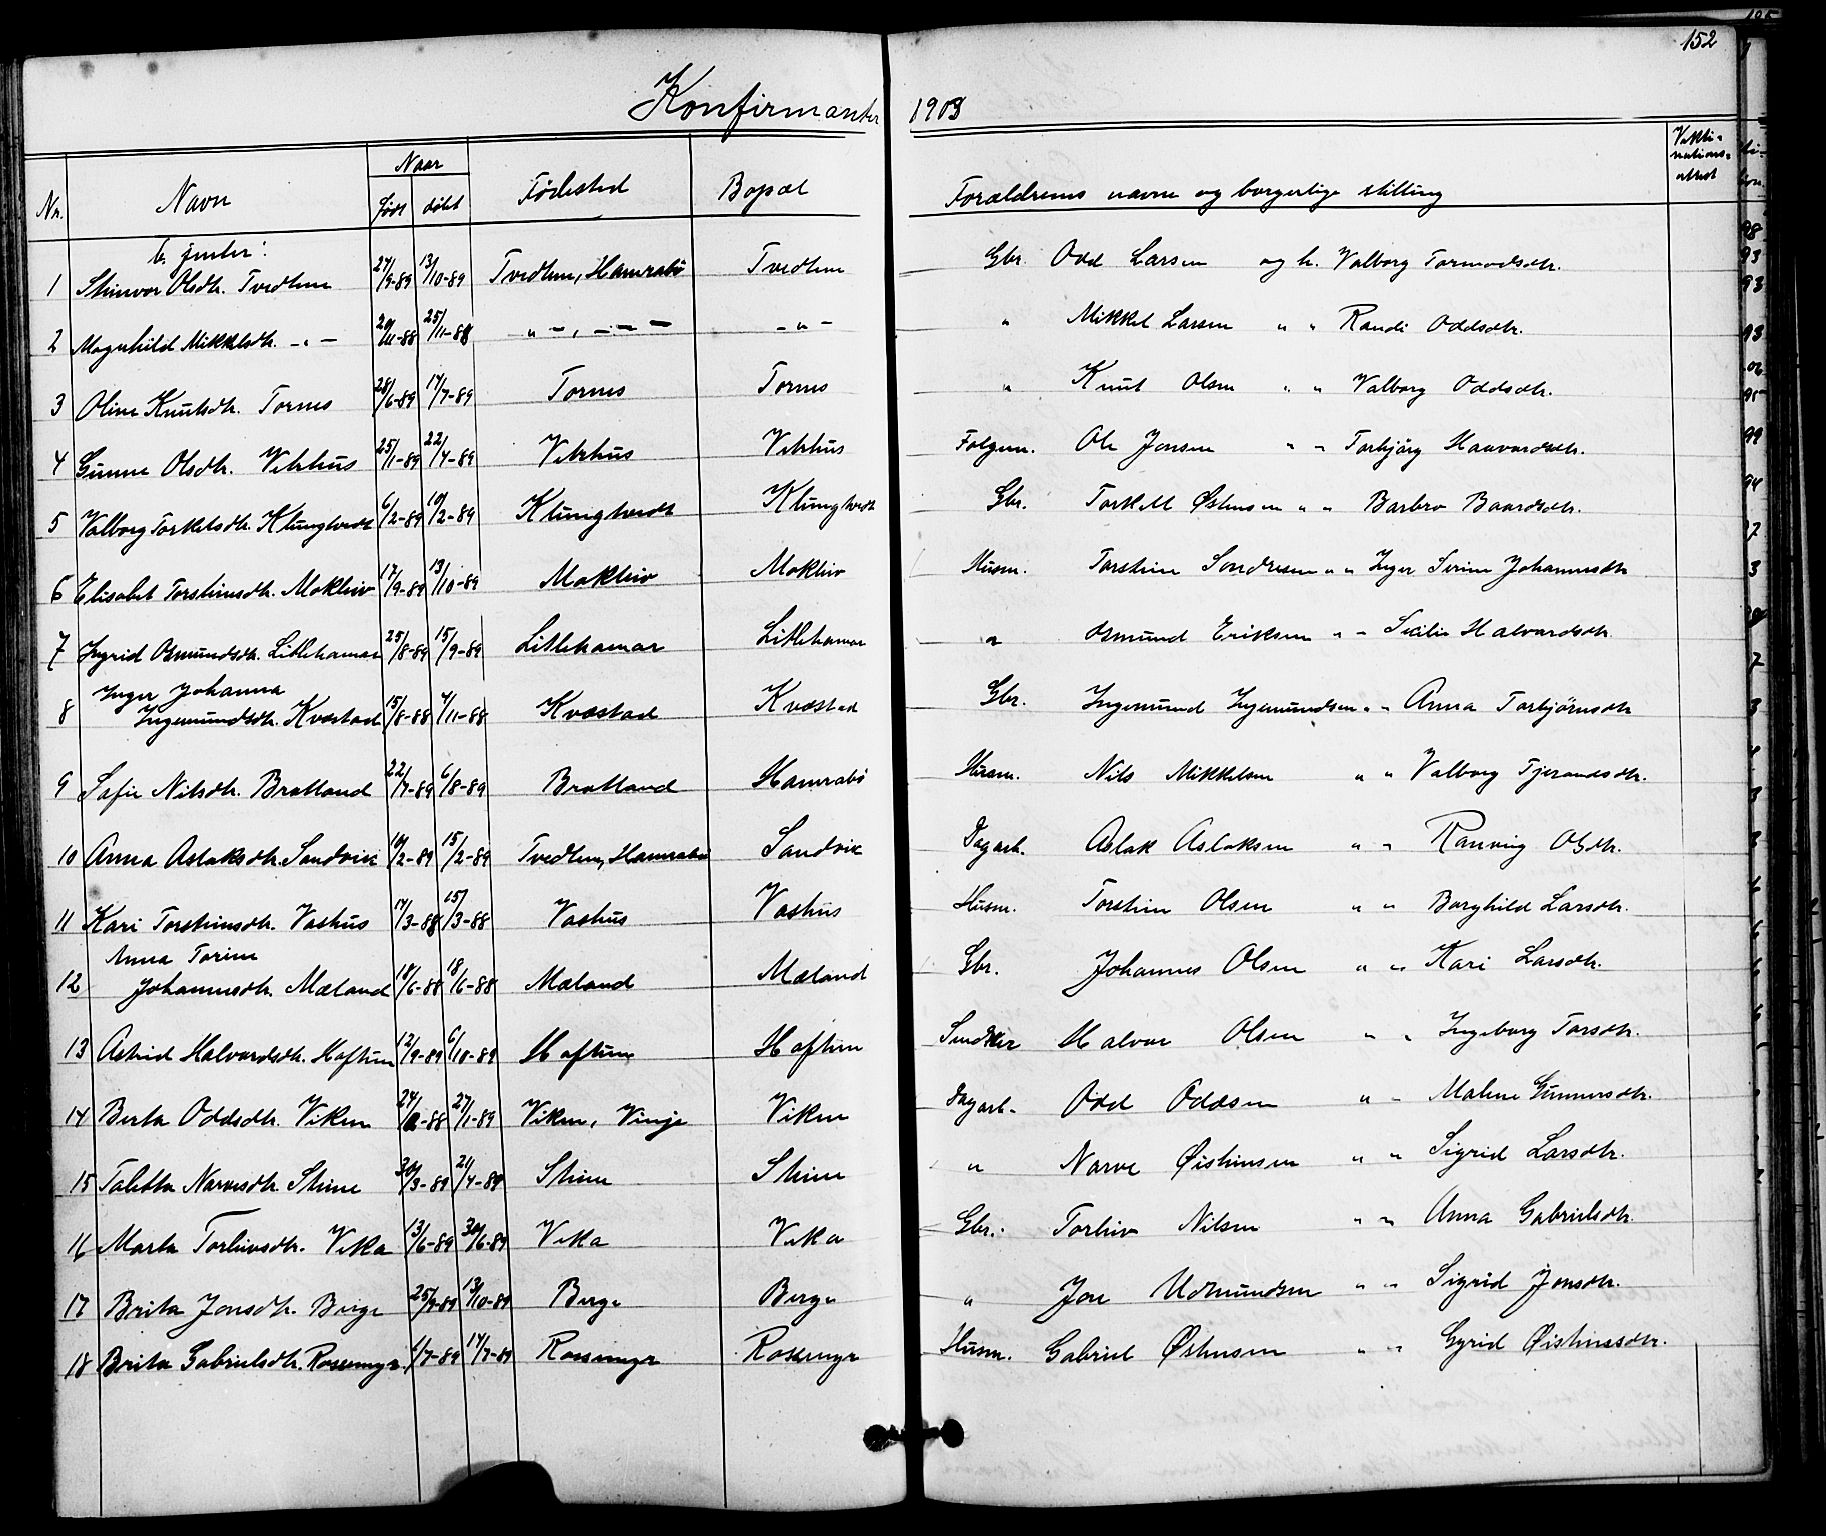 152
Konfirmanter 1903
Nr. Navn Naar født døbt Fødested Bopæl Forældrenes navne og borgerlige stilling Vakcinations-attest
b. jenter:
1 Steinvor Olsdtr. Tvedten 27/9-89 13/10-89 Tvedten, Hamrabø Tvedten Gbr. Odd Larsen og h. Valborg Tormodsdtr.
2 Magnhild Mikkelsdtr. -„- 20/11-88 25/11-88 „ -, - - - -„- „ Mikkel Larsen „ „ Randi Oddsdtr.
3 Oline Knutsdtr. Tornes 28/6-89 14/7-89 Tornes Tornes „ Knut Olsen „ „ Valborg Oddsdtr.
4 Gunne Olsdtr. Vetrhus 25/1-89 22/4-89 Vetrhus Vetrhus Folgem. Ole Jonsen „ „ Torbjørg Haavardsdtr.
5 Valborg Torkelsdtr. Klungtvedt 6/2-89 10/2-89 Klungtvedt Klungtvedt Gbr. Torkell Østensen „ „ Barbro Baardsdtr.
6 Elisabet Torsteinsdtr. Mokleiv 17/9-89 13/10-89 Mokleiv Mokleiv Husm. Torstein Sondresen „ „ Inger Serine Johannesdtr
7 Ingrid Osmundsdtr. Litlehamar 25/8-89 15/9-89 Litlehamar Litlehamar „ Osmund Eriksen „ „ Secilie Halvardsdtr.
Inger Johanna
8 Ingemundsdtr. Kvæstad 15/8-88 4/11-88 Kvæstad Kvæstad Gbr. Ingemund Ingemundsen „ „ Anna Torbjørnsdtr
9 Sofie Nilsdtr. Bratland 22/7-89 6/8-89 Bratland Hamrabø Husm. Nils Mikkelsen „ „ Valborg Tjerandsdtr.
10 Anna Aslaksdtr. Sandvik 10/2-89 15/2-89 Tvedten, Hamrabø Sandvik Dagarb. Aslak Aslaksen „ „ Ranveig Olsdtr.
11 Kari Torsteinsdtr. Vashus 14/3-88 15/3-88 Vashus Vashus Husm. Torstein Olsen „ „ Borghild Larsdtr.
Anna Torine
12 Johannesdtr. Mæland 18/6-88 18/6-88 Mæland Mæland Gbr. Johannes Olsen „ „ Kari Larsdtr.
13 Astrid Halvardsdtr. Haftun 12/9-89 6/10-89 Haftun Haftun Snedker Halvor Olsen „ „ Ingeborg Torsdtr.
14 Berta Oddsdtr. Viken 24/-88 27/1-89 Viken, Vinje Viken Dagarb. Odd Oddsen „ „ Malene Gunnersdtr.
15 Taletta Narvesdtr. Steine 30/3-89 21/4-89 Steine Steine „ Narve Øisteinsen „ „ Sigrid Larsdtr.
16 Marta Torleivsdtr. Veka 13/6-89 30/6-89 Veka Veka Gbr. Torleiv Nilsen „ „ Anna Gabrielsdtr.
17 Brita Jonsdtr. Berge 25/9-89 13/10-89 Berge Berge „ Jon Udmundsen „ „ Sigrid Jonsdtr.
18 Brita Gabrielsdtr. Rossemyr 1/7-89 14/7-89 Rossemyr Rossemyr Husm. Gabriel Østensen „ „ Gyrid Øisteinsdtr.